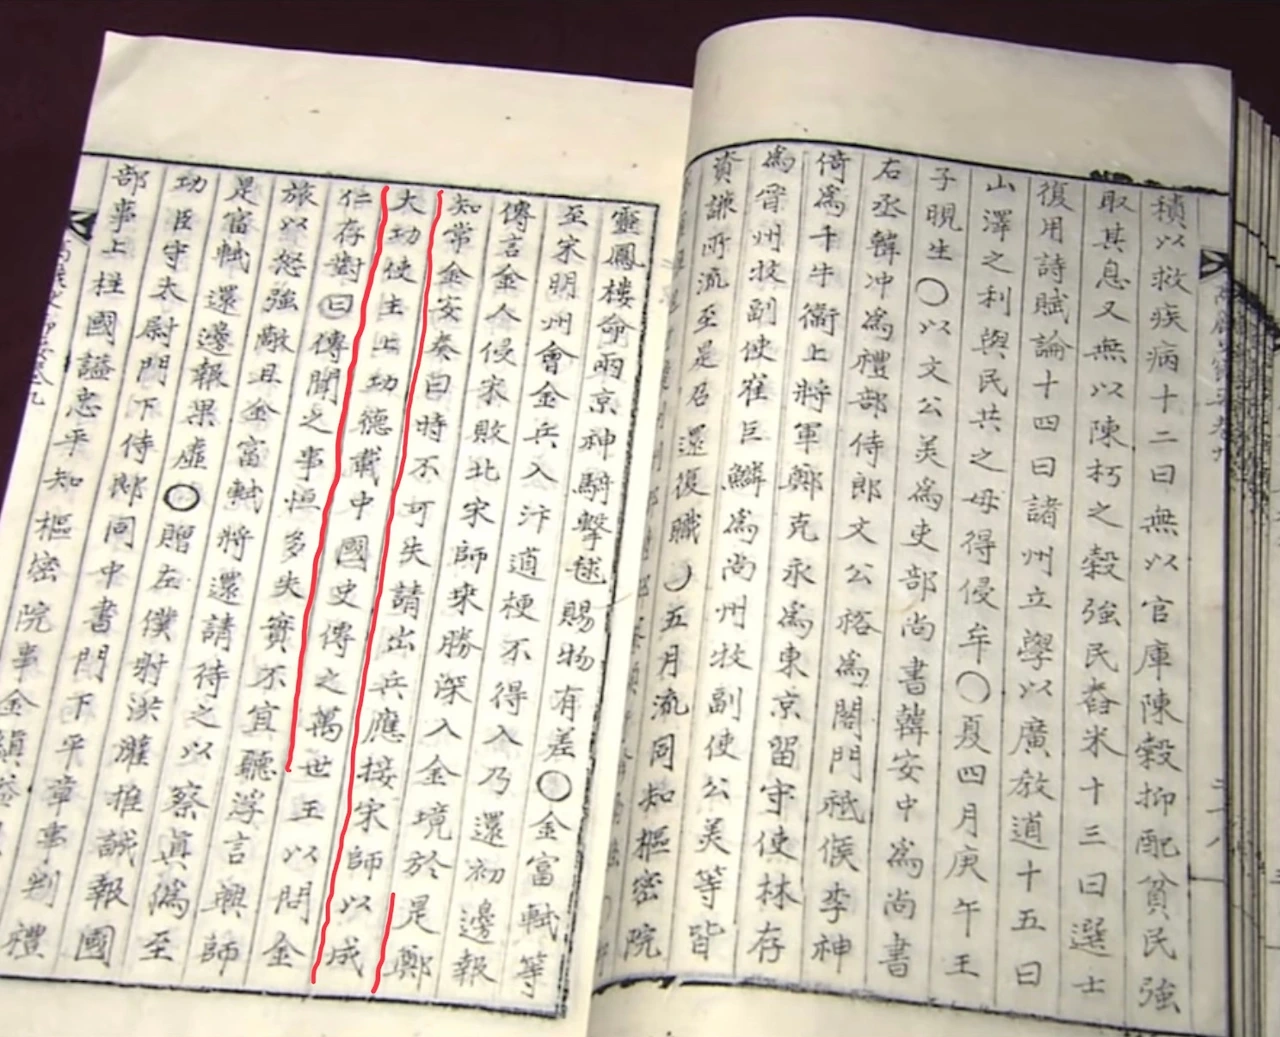 積以救疾病十二曰無以官庫陳穀抑配貧民強
取其息又無以陳朽之穀強民舂米十三曰選士
復用詩賦論十四曰諸州立學以廣敎道十五曰
山澤之利與民共之毋得侵牟○夏四月庚午王
子晛生○以文公美爲吏部尚書韓安中爲尚書
右丞韓冲爲禮部侍郎文公裕爲閣門祗候李神
倚爲千牛衛上將軍鄭克永爲東京留守使林存
爲晉州牧副使崔巨鱗爲尚州牧副使公美等皆
資謙所流至是召還復職○五月流同知樞密院
靈鳳樓命兩京神騎擊毬賜物有差○金富軾等
至宋明州會金兵入汴道梗不得入乃還初邊報
傳言金人侵宋敗北宋師乘勝深入金境於是鄭
知常金安奏曰時不可失請出兵應接宋師以成
大功使主上功德載中國史傳之萬世王以問金
仁存對曰傳聞之事恒多失實不宜聽浮言興師
旅以怒強敵且金富軾將還請待之以察眞僞至
是富軾還邊報果虛○贈左僕射洪灌推誠報國
功臣守太尉門下侍郎同中書門下平章事判禮
部事上柱國諡忠平知樞密院事金縝